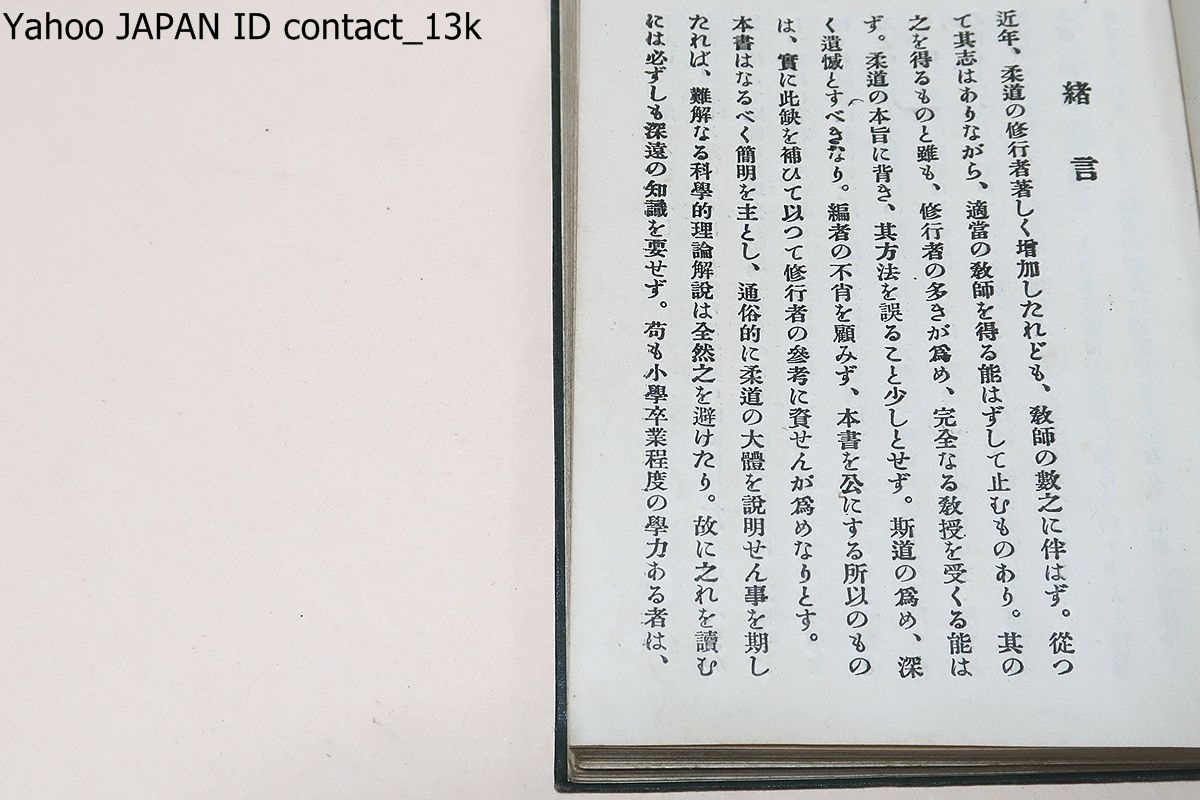 Yahoo JAPAN ID contact_13k
緒言
近年、柔道の修行者著しく増加したれども、教師の數之に伴はず。從つ
て其志はありながら、適當の教師を得る能はずして止むものあり。其の
之を得るものと雖も、修行者の多きが爲め、完全なる教授を受くる能は
ず。柔道の本旨に背き、其方法を誤ること少しとせず。斯道の爲め、深
く遺憾とすべきなり。編者の不肖を顧みず、本書を公にする所以のもの
は、實に此缺を補ひて以つて修行者の參考に資せんが爲めなりとす。
本書はなるべく簡明を主とし、通俗的に柔道の大體を說明せん事を期し
たれば、難解なる科學的理論解說は全然之を避けたり。故に之れを讀む
には必ずしも深遠の知識を要せず。苟も小學卒業程度の學力ある者は、